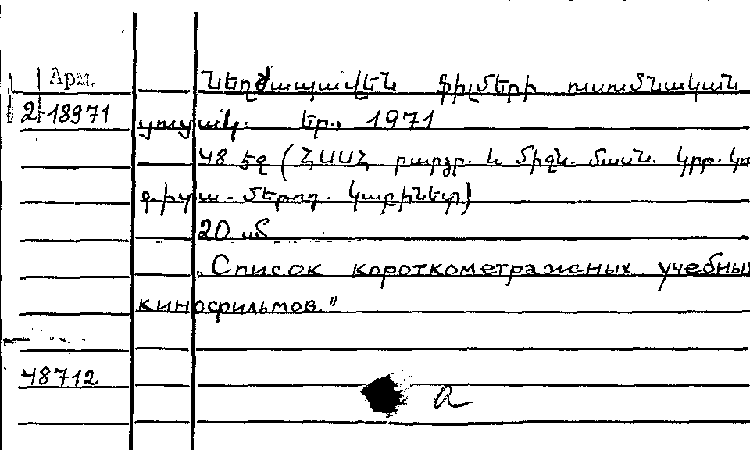 Арм.
Նեղժապավեն ֆիլմերի ուսումնական
2-18971
ցուցակ. Եր., 1971
48 էջ (ՀՍՍՀ բարձր. և միջն. մասն. կրթ.
գիտա-մեթոդ. կաբինետ)
20 սմ
„Список короткометражных учебных
кинофильмов."
48712
a